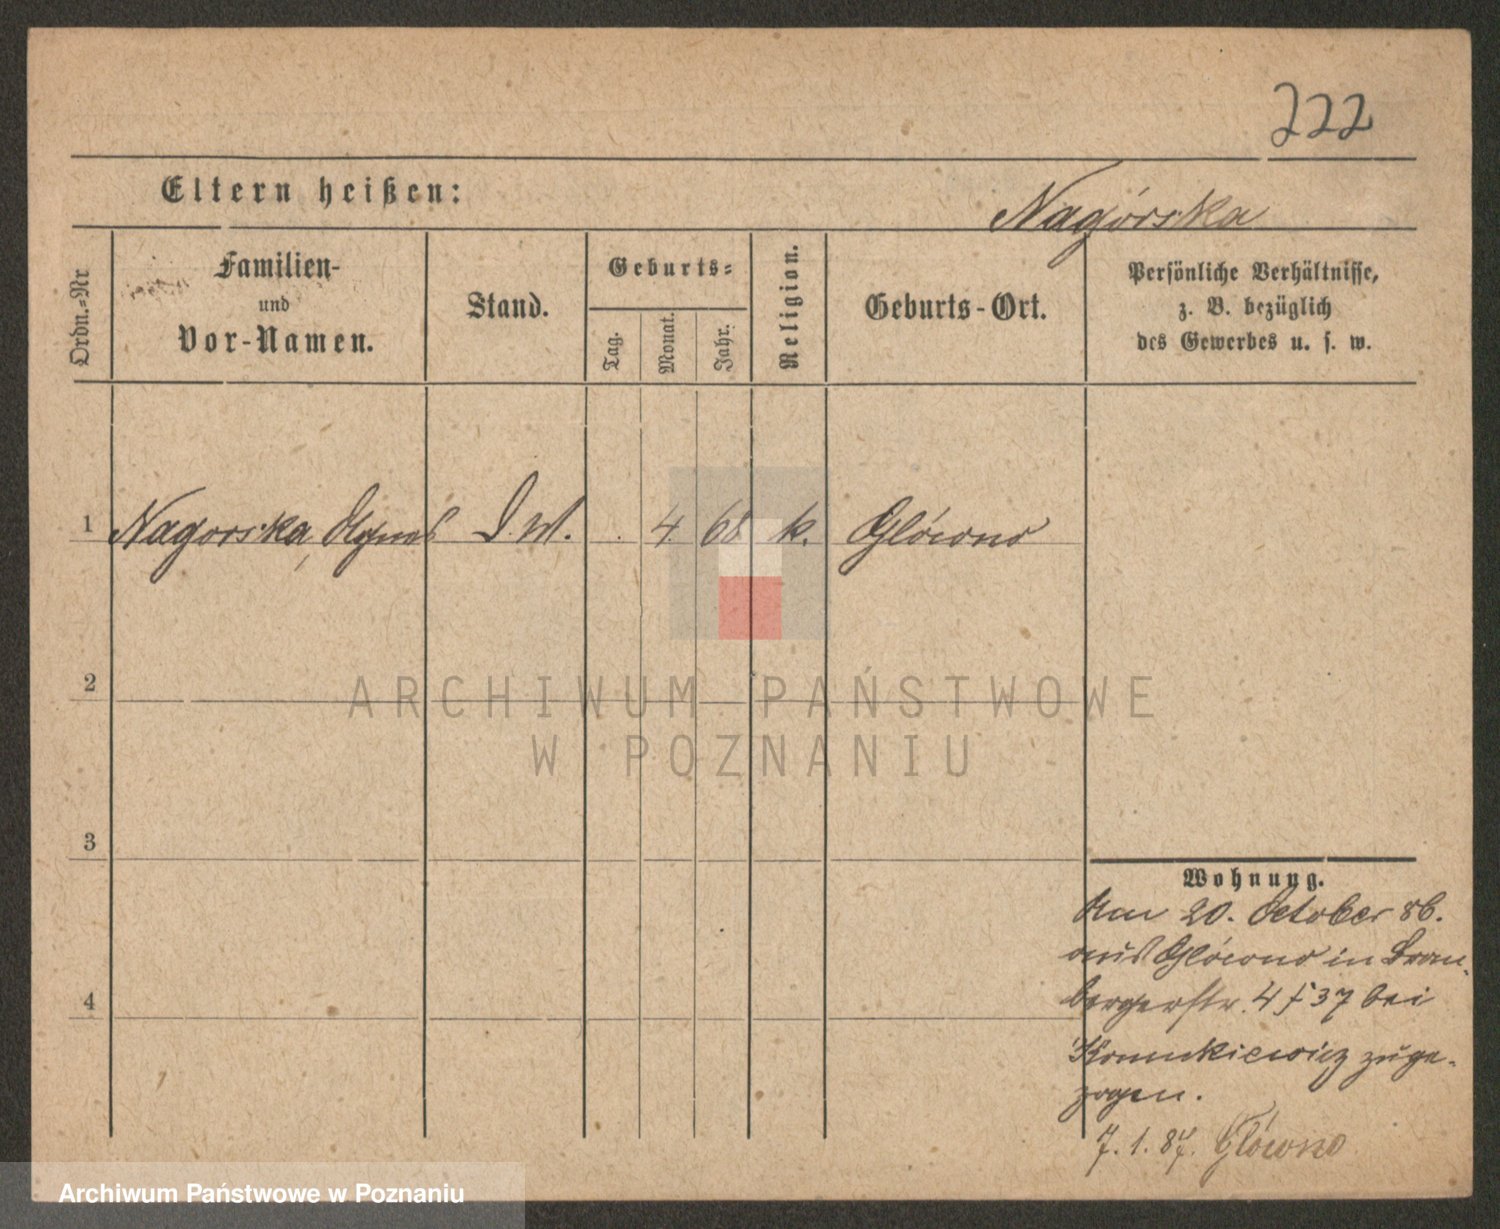 222
Eltern heißen:
Nagórska
Ordn.-Nr
Familien-
und
Vor-Namen.
Stand.
Geburts-
Tag.
Monat.
Jahr.
Religion.
Geburts-Ort.
Persönliche Verhältnisse,
z. B. bezüglich
des Gewerbes u. s. w.
1 Nagorska, Agnes D. M. . 4 68 k. Główno
2
ARCHIWUM PAŃSTWOWE
W POZNANIU
3
4
Wohnung.
Am 20. October 86.
aus Główno in Brom-
bergerstr. 4 f 37 bei
zuge-
zogen.
7. 1. 87. Główno
Archiwum Państwowe w Poznaniu